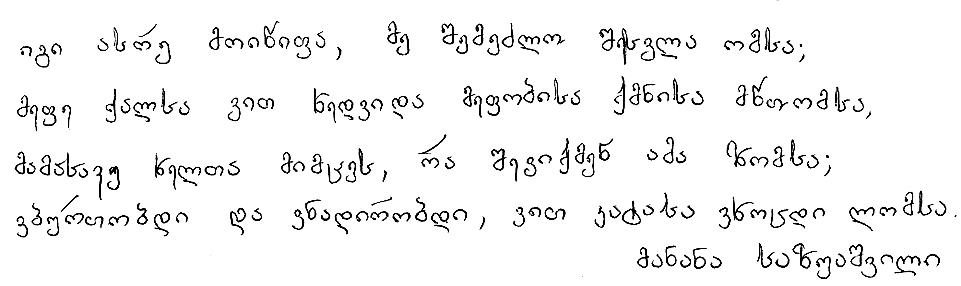 იგი ასრე მოიწიფა, მე შემეძლო შესვლა ომსა;
მეფე ქალსა ვით ხედვიდა მეფობისა ქმნისა მწთომსა,
მამასავე ხელთა მიმცეს, რა შევიქმენ ამა ზომსა;
ვბურთობდი და ვნადირობდი, ვით კატასა ვხოცდი ლომსა.
მანანა საზუაშვილი